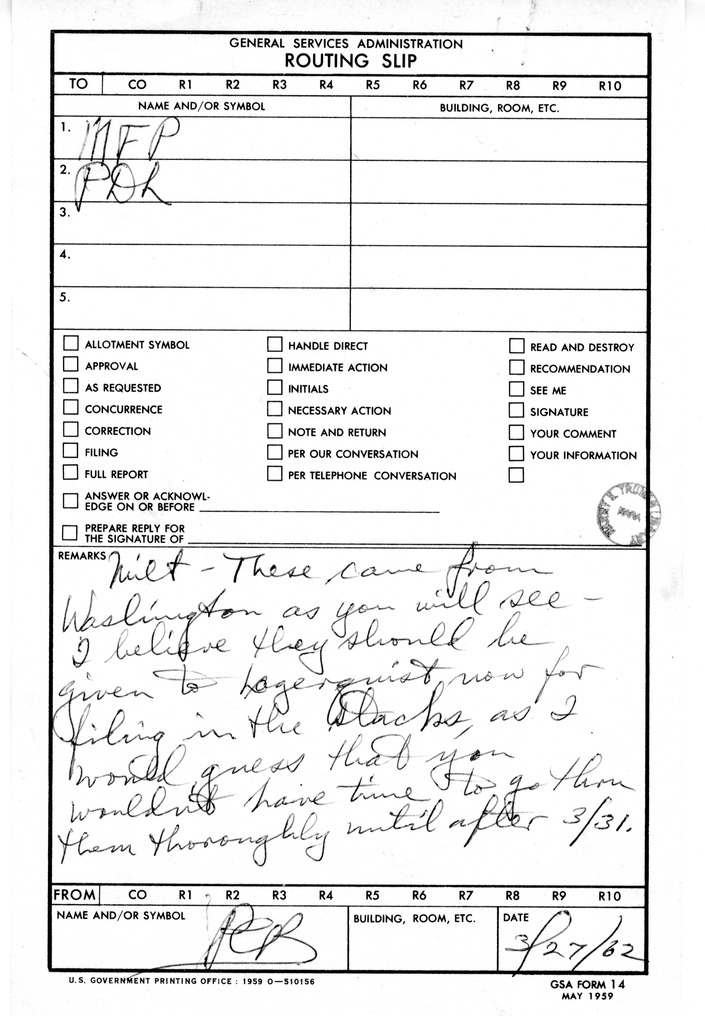 GENERAL SERVICES ADMINISTRATION
ROUTING SLIP
TO CO R1 R2 R3 R4 R5 R6 R7 R8 R9 R10
NAME AND/OR SYMBOL BUILDING, ROOM, ETC.
1. MFP
2. PDL
3.
4.
5.
ALLOTMENT SYMBOL HANDLE DIRECT READ AND DESTROY
APPROVAL IMMEDIATE ACTION RECOMMENDATION
AS REQUESTED INITIALS SEE ME
CONCURRENCE NECESSARY ACTION SIGNATURE
CORRECTION NOTE AND RETURN YOUR COMMENT
FILING PER OUR CONVERSATION YOUR INFORMATION
FULL REPORT PER TELEPHONE CONVERSATION
ANSWER OR ACKNOWL-
EDGE ON OR BEFORE
PREPARE REPLY FOR
THE SIGNATURE OF
HARRY S. TRUMAN LIBRARY
NARA
REMARKS Milt - These came from
Washington as you will see -
I believe they should be
given to Lagerquist now for
filing in the stacks, as I
would guess that you
wouldn't have time to go thru
them thoroughly until after 3/31.
FROM CO R1 R2 R3 R4 R5 R6 R7 R8 R9 R10
NAME AND/OR SYMBOL BUILDING, ROOM, ETC. DATE
PCB 3/27/62
U.S. GOVERNMENT PRINTING OFFICE : 1959 O—510156 GSA FORM 14
MAY 1959